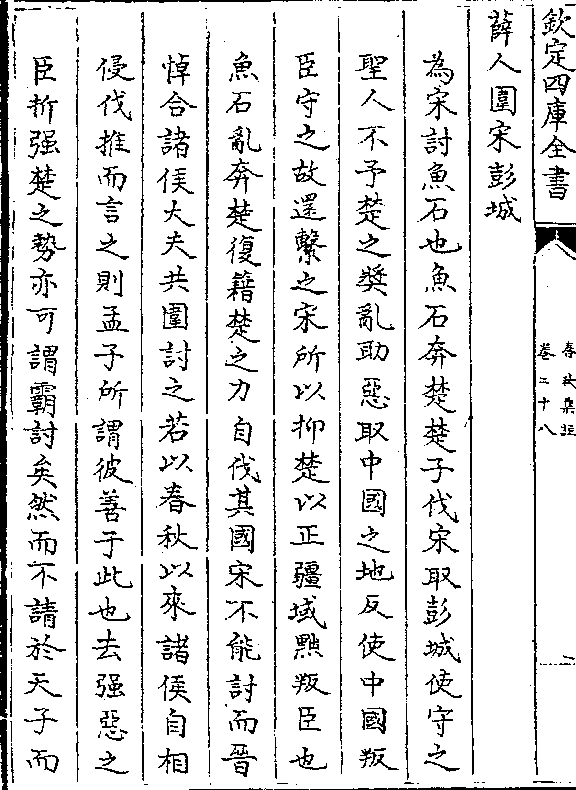 欽定四庫全書
春秋集註
卷二十八
二
薛人圍宋彭城
為宋討魚石也魚石奔楚楚子伐宋取彭城使守之
聖人不予楚之奬亂助惡取中國之地反使中國叛
臣守之故還繫之宋所以抑楚以正疆域㸃叛臣也
魚石亂奔楚復籍楚之力自伐其國宋不能討而晉
悼合諸侯大夫共圍討之若以春秋以來諸侯自相
侵伐推而言之則孟子所謂彼善于此也去强惡之
臣折强楚之勢亦可謂霸討矣然而不請於天子而